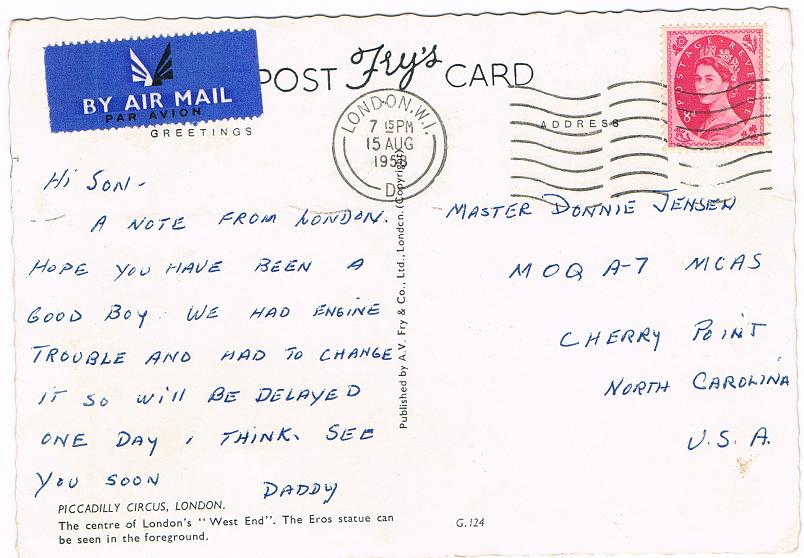 POST Fry's CARD
BY AIR MAIL
PAR AVION
GREETINGS
LONDON. W.1.
7 15 PM
15 AUG
1958
D
ADDRESS
POSTAGE REVENUE
8d
Hi Son -
A NOTE FROM LONDON.
HOPE YOU HAVE BEEN A
GOOD BOY. WE HAD ENGINE
TROUBLE AND HAD TO CHANGE
IT SO WILL BE DELAYED
ONE DAY I THINK. SEE
YOU SOON
DADDY
PICCADILLY CIRCUS, LONDON.
The centre of London's "West End". The Eros statue can
be seen in the foreground.
Published by A.V. Fry & Co., Ltd., London. (Copyright)
MASTER DONNIE JENSEN
MOQ A-7 MCAS
CHERRY POINT
NORTH CAROLINA
U.S.A.
G.124